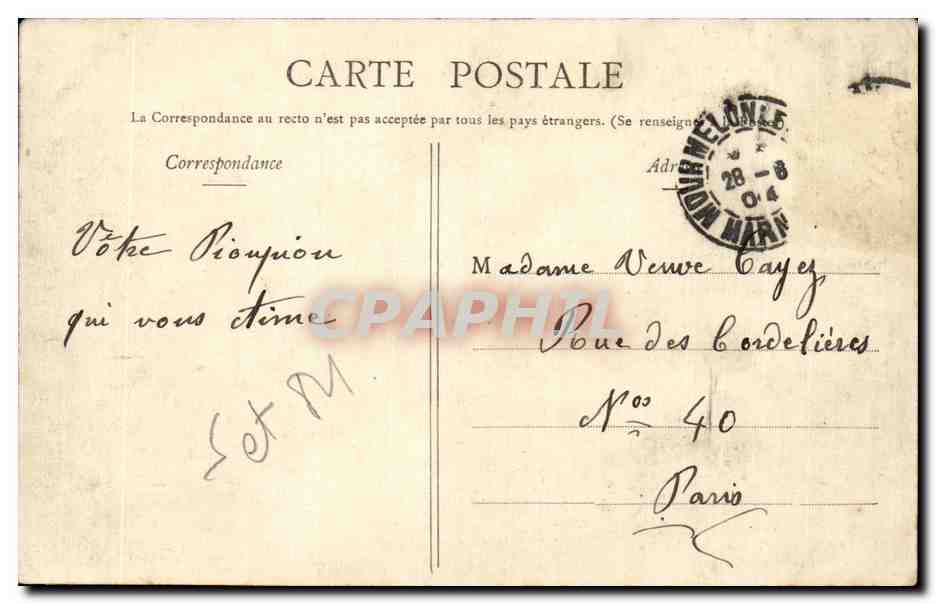 CARTE POSTALE
La Correspondance au recto n'est pas acceptée par tous les pays étrangers. (Se renseigner
Correspondance
Adr
MOURMELON
28 - 8
04
MARN
Vôtre Pioupiou
qui vous Aime
Madame Veuve Cayez
Rue des Cordelières
Nos 40
Paris
S et M.
CPAPHIL